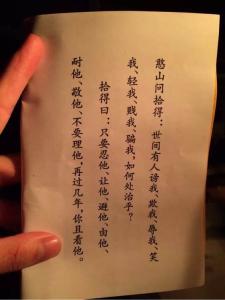 憨山问拾得：世间有人谤我、欺我、辱我、笑
我、轻我、贱我、骗我，如何处治乎？
拾得曰：只要忍他、让他、避他、由他、
耐他、敬他、不要理他，再过几年，你且看他。